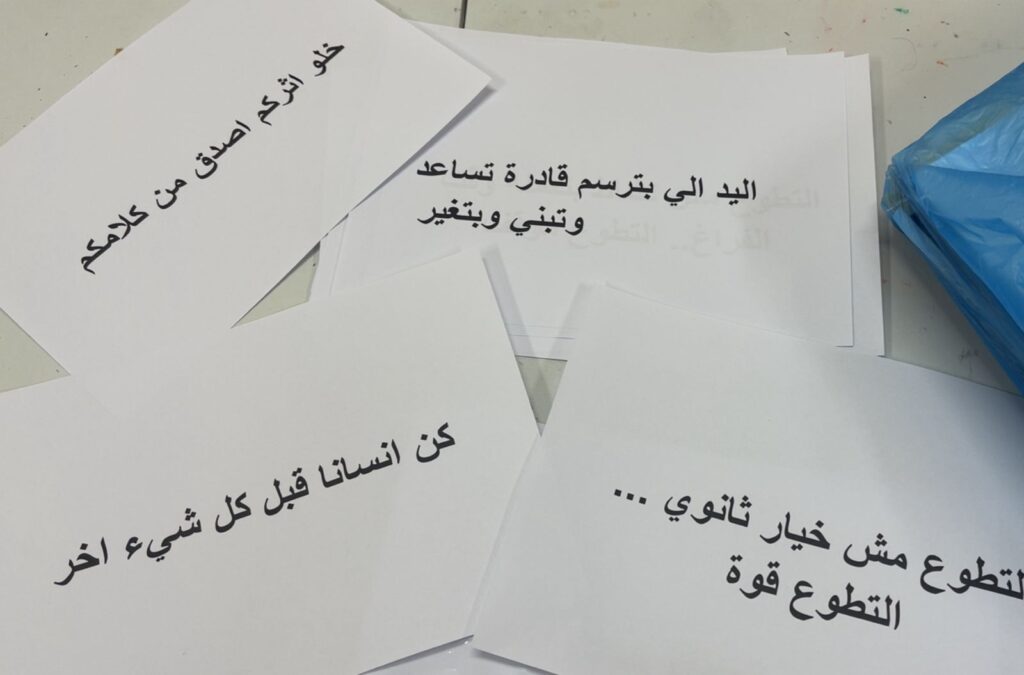 خلو اثركم اصدق من كلامكم
اليد الي بترسم قادرة تساعد
وتبني وبتغير
كن انسانا قبل كل شيء اخر
التطوع مش خيار ثانوي ...
التطوع قوة